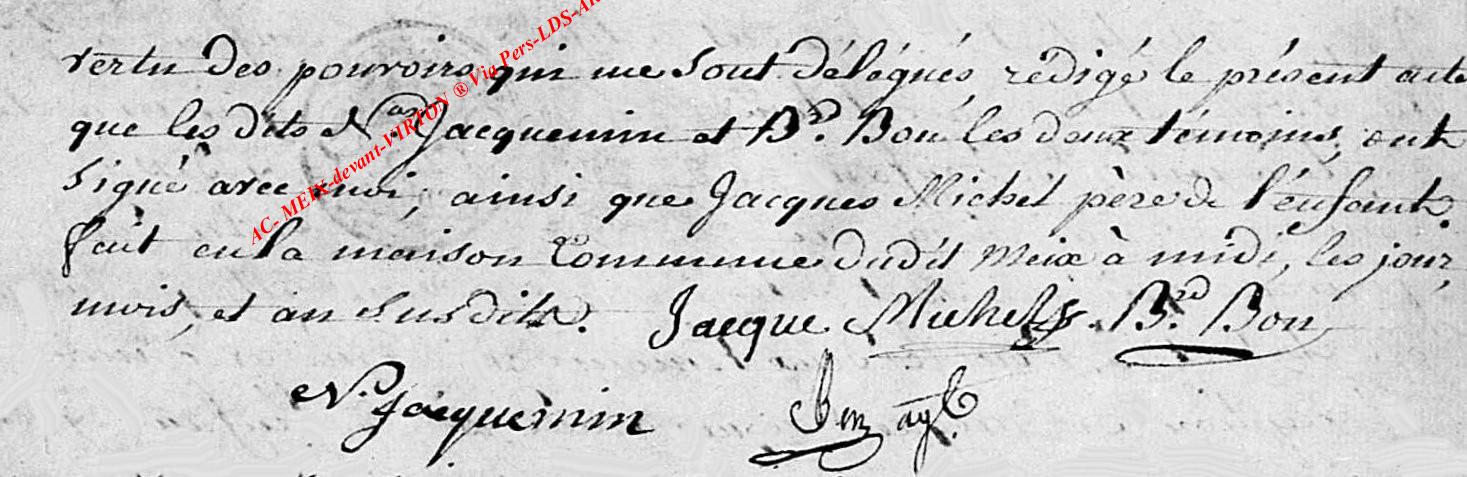 vertu des pouvoirs qui me sont délégués, rédigé le présent acte
que les dits N.as Jacquemin et B.d Bon les deux témoins, ont
signé avec moi, ainsi que Jacques Michel père de l'enfant.
fait en la maison Commune dudit Meix à midi, les jour,
mois, et an susdits. Jacque Michel B.rd Bon
N. Jacquemin agt
AC- MEIX-devant-VIRTON ® Via Pers-LDS-AR